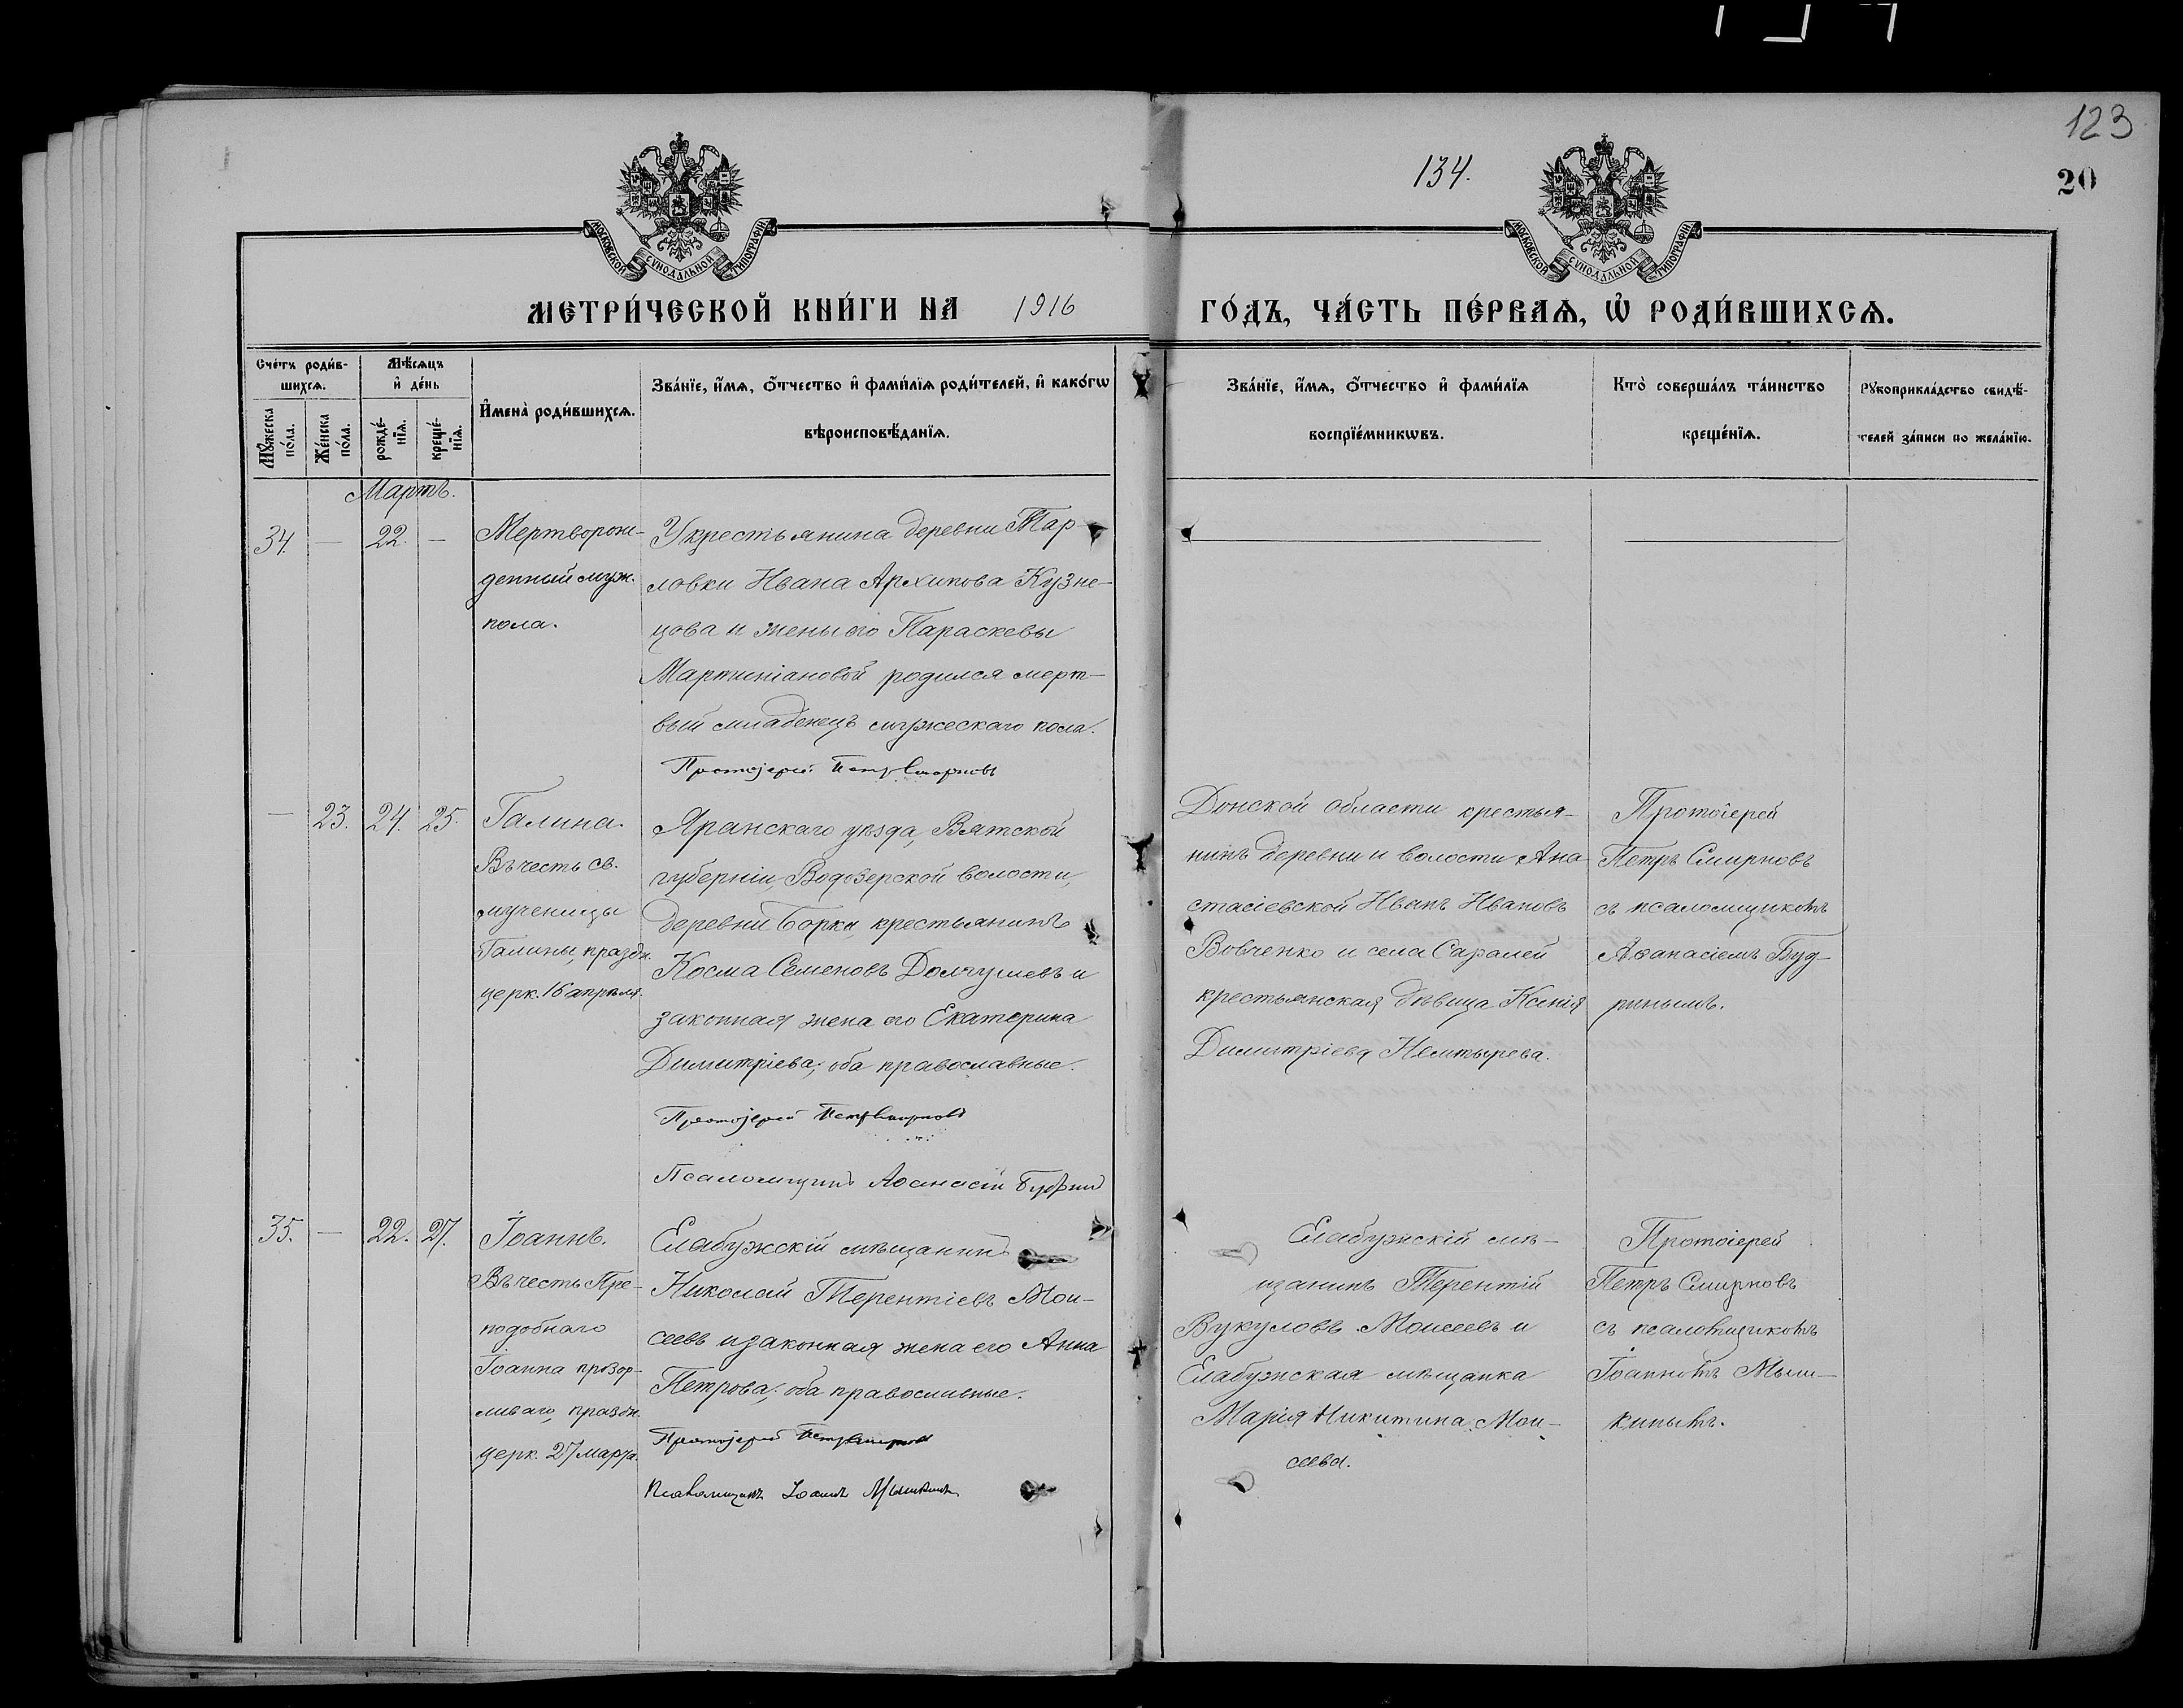 123
134.
20
МОСКОВСКОЙ СѴНОДАЛЬНОЙ ТИПОГРАФІИ
МОСКОВСКОЙ СѴНОДАЛЬНОЙ ТИПОГРАФІИ
МЕТРИ́ЧЕСКОЙ КНИ́ГИ НА 1916 ГО́ДЪ, ЧА́СТЬ ПЕ́РВАѦ, Ѡ҆ РОДИ́ВШИХСѦ.
Сче́тъ роди́в-
шихсѧ.
Мꙋ́жеска
по́ла.
Же́нска
по́ла.
Мѣ́сѧцъ
и҆ де́нь
рожде́-
нїѧ.
креще́-
нїѧ.
И҆мена̀ роди́вшихсѧ.
Зва́нїе, и҆́мѧ, ѻ҆́тчество и҆ фами́лїѧ роди́телей, и҆ како́гѡ
вѣроисповѣ́данїѧ.
Зва́нїе, и҆́мѧ, ѻ҆́тчество и҆ фами́лїѧ
воспрїе́мникѡвъ.
Кто̀ соверша́лъ та́инство
креще́нїѧ.
Рꙋкоприкла́дство свидѣ́-
телей за́писи по жела́нїю.
Мартъ.
34. — 22. —
Мертворож-
денный муж.
пола.
У крестьянина деревни Тар-
ловки Ивана Архипова Кузне-
цова и жены его Параскевы
Мартиніановой родился мерт-
вый младенецъ мужескаго пола.
Протоіерей Петръ Смирновъ
— 23. 24. 25.
Галина.
Въ честь св.
мученицы
Галины, праздн.
церк. 16 апрѣля.
Яранскаго уѣзда, Вятской
губерніи, Водозерской волости,
деревни Борки, крестьянинъ
Косма Семеновъ Долгушевъ и
законная жена его Екатерина
Димитріева; оба православные.
Протоіерей Петръ Смирновъ
Псаломщикъ Аѳанасій Будринъ
Донской области крестья-
нинъ деревни и волости Ана-
стасіевской Иванъ Ивановъ
Вовченко и села Саралей
крестьянская дѣвица Ксенія
Димитріева Немтырева.
Протоіерей
Петръ Смирновъ
съ псаломщикомъ
Аѳанасіемъ Буд-
ринымъ.
35. — 22. 27.
Іоаннъ.
Въ честь Пре-
подобнаго
Іоанна прозор-
ливаго, праздн.
церк. 27 марта.
Елабужскій мѣщанинъ
Николай Терентіевъ Мои-
сеевъ и законная жена его Анна
Петрова; оба православные.
Протоіерей Петръ Смирновъ
Псаломщикъ Іоаннъ Мышкинъ
Елабужскій мѣ-
щанинъ Терентій
Вукуловъ Моисеевъ и
Елабужская мѣщанка
Марія Никитина Мои-
сеева.
Протоіерей
Петръ Смирновъ
съ псаломщикомъ
Іоанномъ Мыш-
кинымъ.